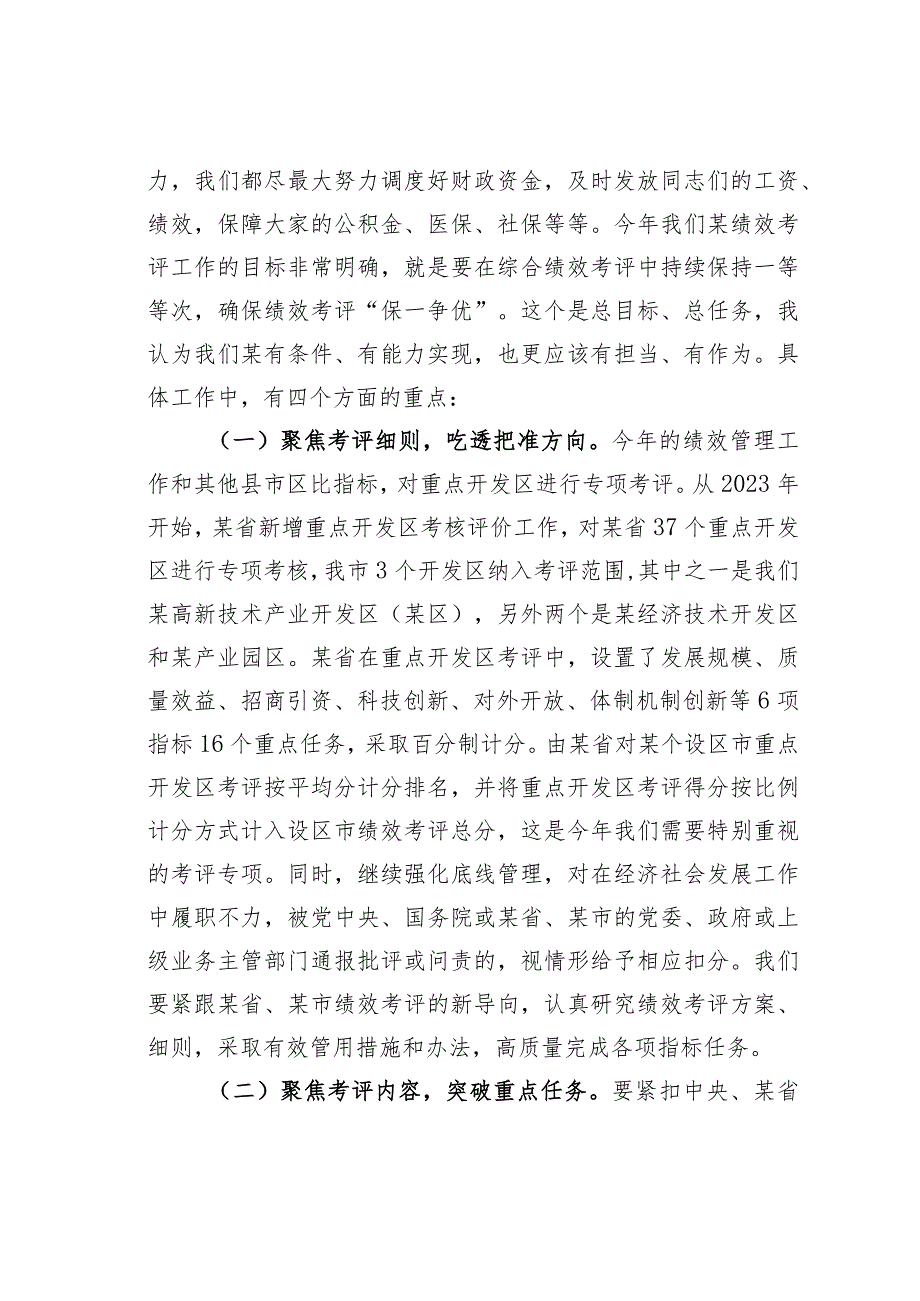 力，我们都尽最大努力调度好财政资金，及时发放同志们的工资、
绩效，保障大家的公积金、医保、社保等等。今年我们某绩效考
评工作的目标非常明确，就是要在综合绩效考评中持续保持一等
等次，确保绩效考评“保一争优”。这个是总目标、总任务，我
认为我们某有条件、有能力实现，也更应该有担当、有作为。具
体工作中，有四个方面的重点：
（一）聚焦考评细则，吃透把准方向。今年的绩效管理工
作和其他县市区比指标，对重点开发区进行专项考评。从 2023 年
开始，某省新增重点开发区考核评价工作，对某省 37 个重点开发
区进行专项考核，我市 3 个开发区纳入考评范围,其中之一是我们
某高新技术产业开发区（某区），另外两个是某经济技术开发区
和某产业园区。某省在重点开发区考评中，设置了发展规模、质
量效益、招商引资、科技创新、对外开放、体制机制创新等 6 项
指标 16 个重点任务，采取百分制计分。由某省对某个设区市重点
开发区考评按平均分计分排名，并将重点开发区考评得分按比例
计分方式计入设区市绩效考评总分，这是今年我们需要特别重视
的考评专项。同时，继续强化底线管理，对在经济社会发展工作
中履职不力，被党中央、国务院或某省、某市的党委、政府或上
级业务主管部门通报批评或问责的，视情形给予相应扣分。我们
要紧跟某省、某市绩效考评的新导向，认真研究绩效考评方案、
细则，采取有效管用措施和办法，高质量完成各项指标任务。
（二）聚焦考评内容，突破重点任务。要紧扣中央、某省